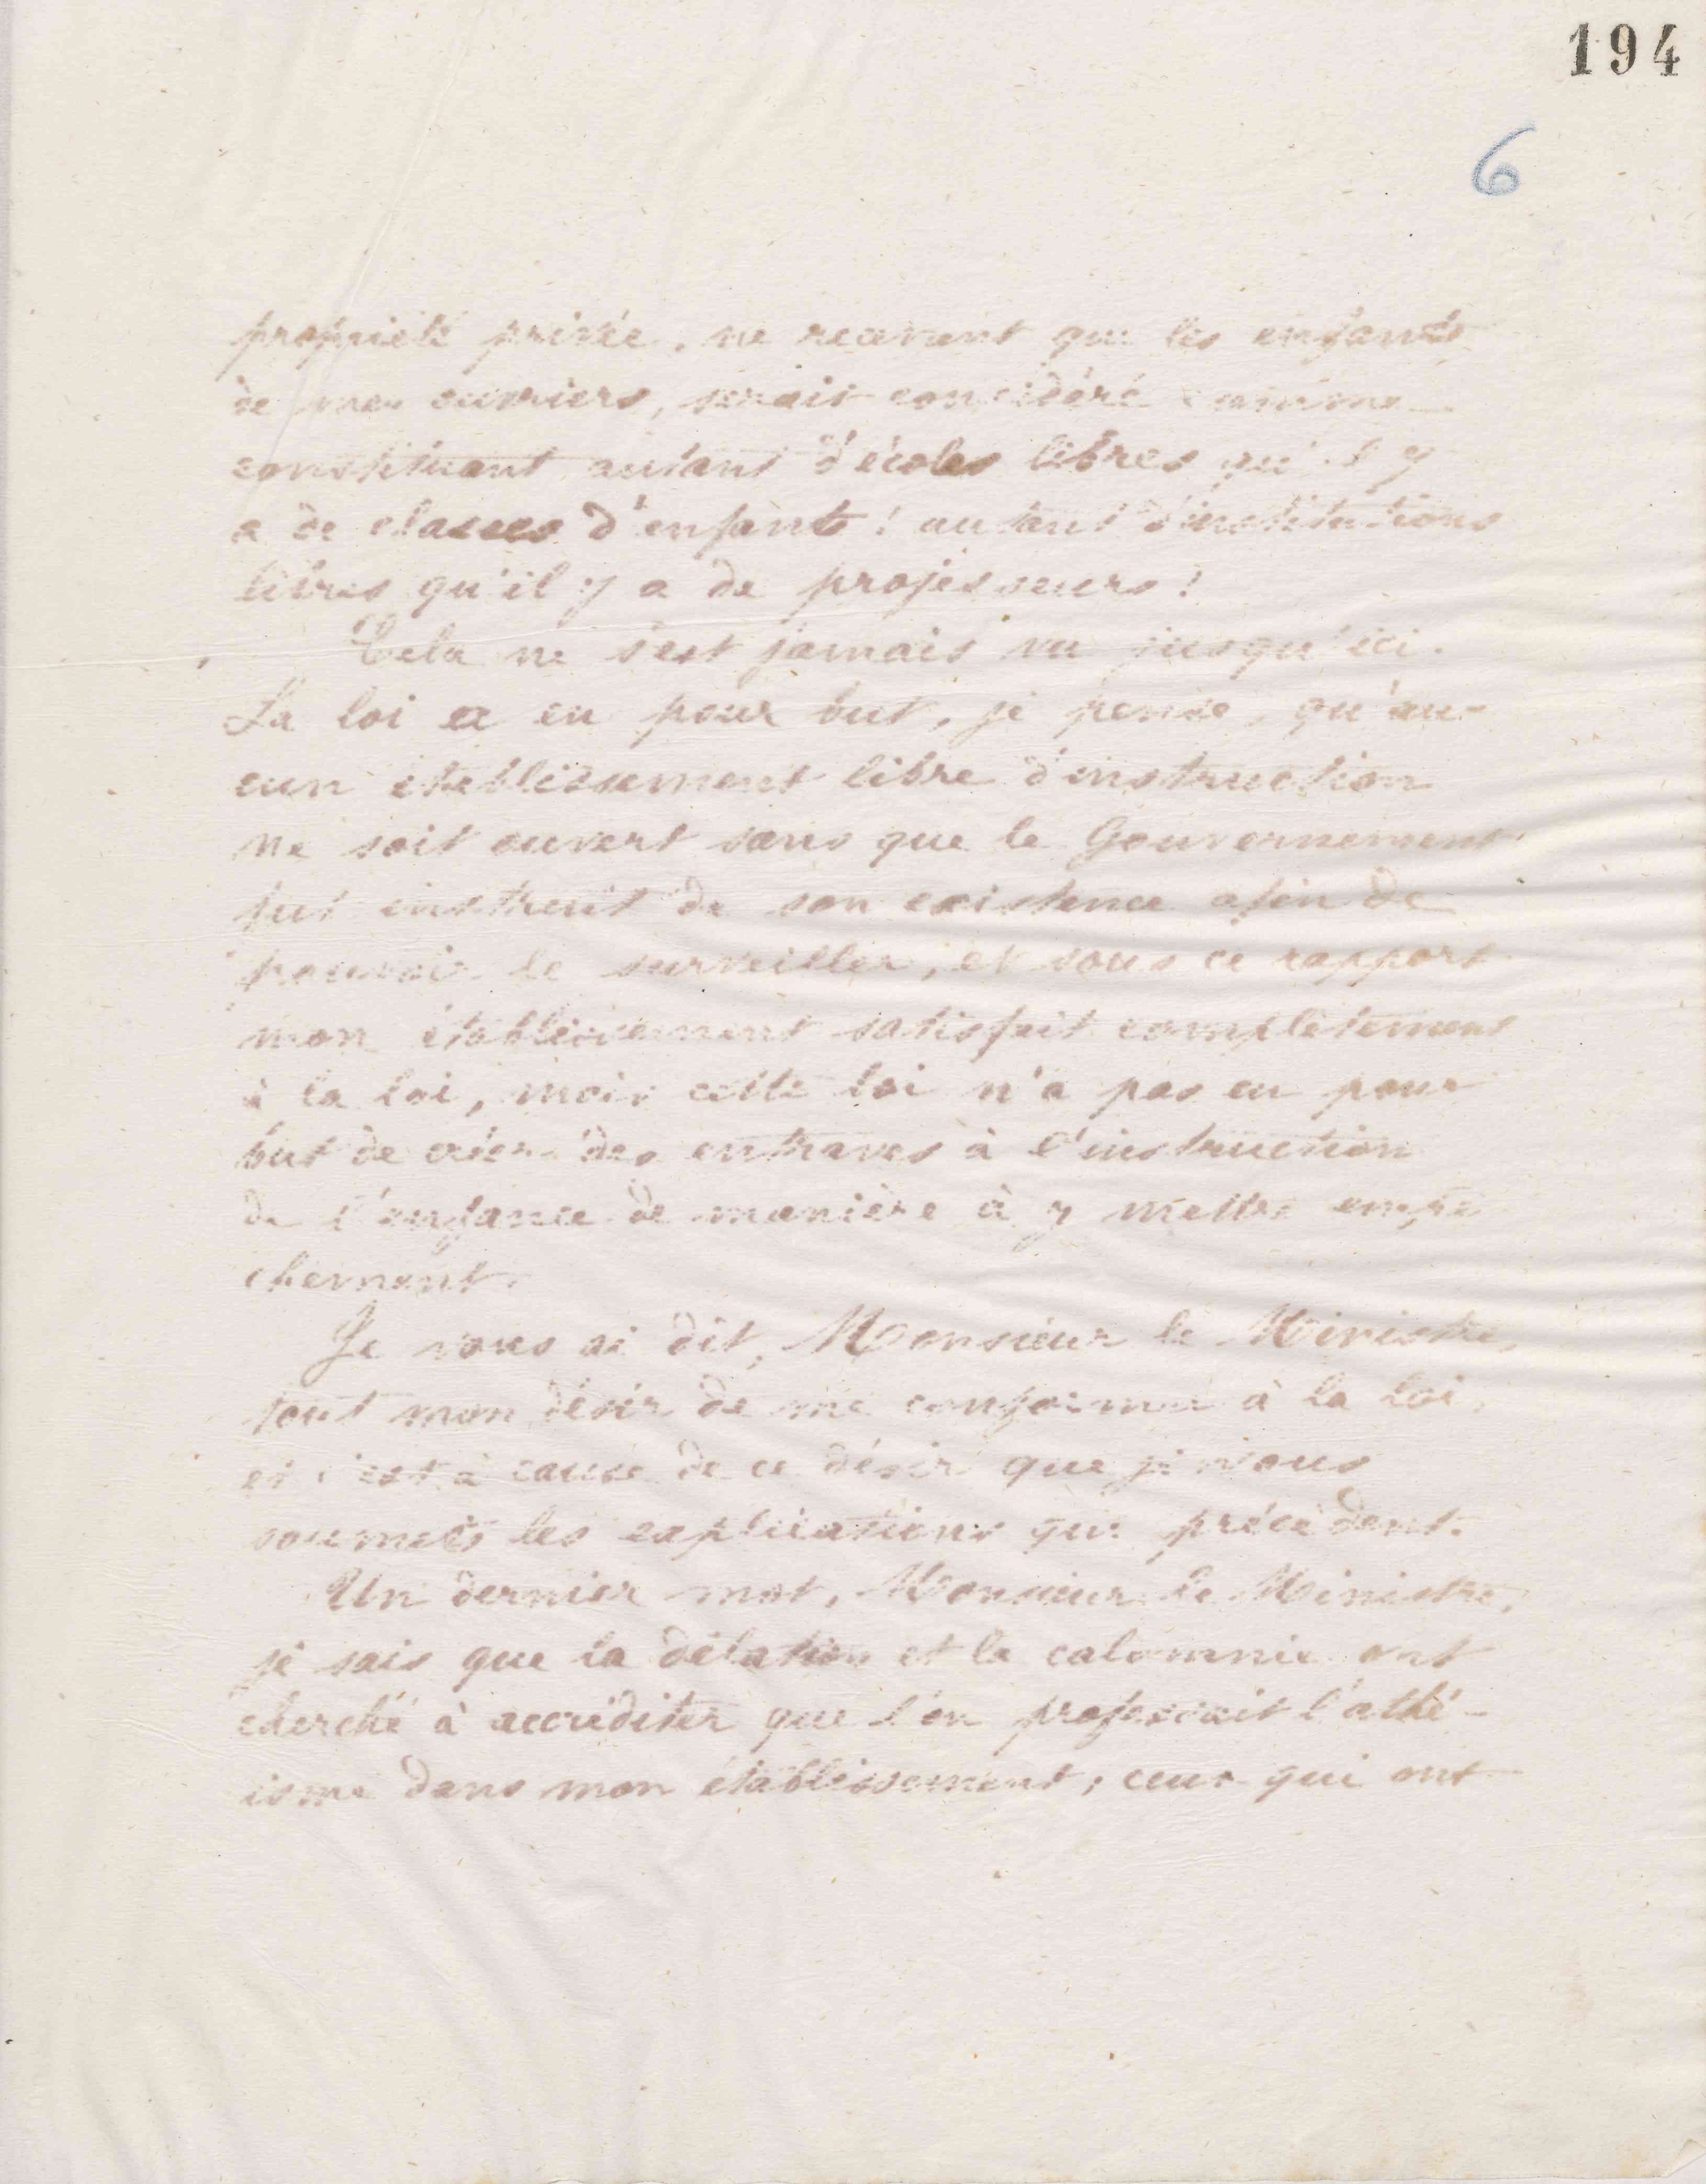 194
6
propriété privée, ne recevant que les enfants
de mes ouvriers, serait considéré comme
constituant autant d'écoles libres qu'il y
a de classes d'enfants ! autant d'institutions
libres qu'il y a de professeurs !
Cela ne s'est jamais vu jusqu'ici.
La loi a eu pour but, je pense, qu'au-
cun établissement libre d'instruction
ne soit ouvert sans que le Gouvernement
fut instruit de son existence afin de
pouvoir le surveiller, et sous ce rapport
mon établissement satisfait complètement
à la loi, mais cette loi n'a pas eu pour
but de créer des entraves à l'instruction
de l'enfance de manière à y mettre empê
chement.
Je vous ai dit, Monsieur le Ministre,
tout mon désir de me conformer à la loi,
et c'est à cause de ce désir que je vous
soumets les explications qui précèdent.
Un dernier mot, Monsieur le Ministre,
je sais que la délation et la calomnie ont
cherché à accréditer que l'on professait l'athé-
isme dans mon établissement ; ceux qui ont